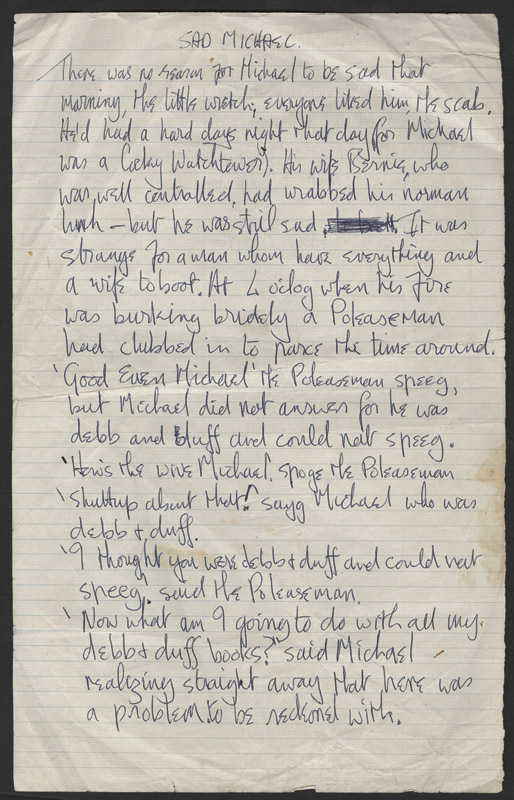 SAD MICHAEL.
There was no reason for Michael to be sad that
morning, the little wretch; everyone liked him, the scab.
He'd had a hard days night that day, for Michael
was a Cocky Watchtower). His wife Bernie, who
was well controlled, had wrabbed his norman
lunch – but he was still sad. It was
strange for a man whom have everything and
a wife to boot. At 4 o'clog when his fire
was burking bridely a Poleaseman
had clubbed in to parse the time around.
'Good Even Michael' the Poleaseman speeg,
but Michael did not answer for he was
debb and duff and could nat speeg.
'How's the wive Michael. spoge the Poleaseman
'Shuttup about that!' sayg Michael who was
debb & duff.
'I thought you were debb & duff and could nat
speeg'. said the Poleaseman.
'Now what am I going to do with all my.
debb & duff books?' said Michael
realizing straight away that here was
a problem. to be reckoned with.